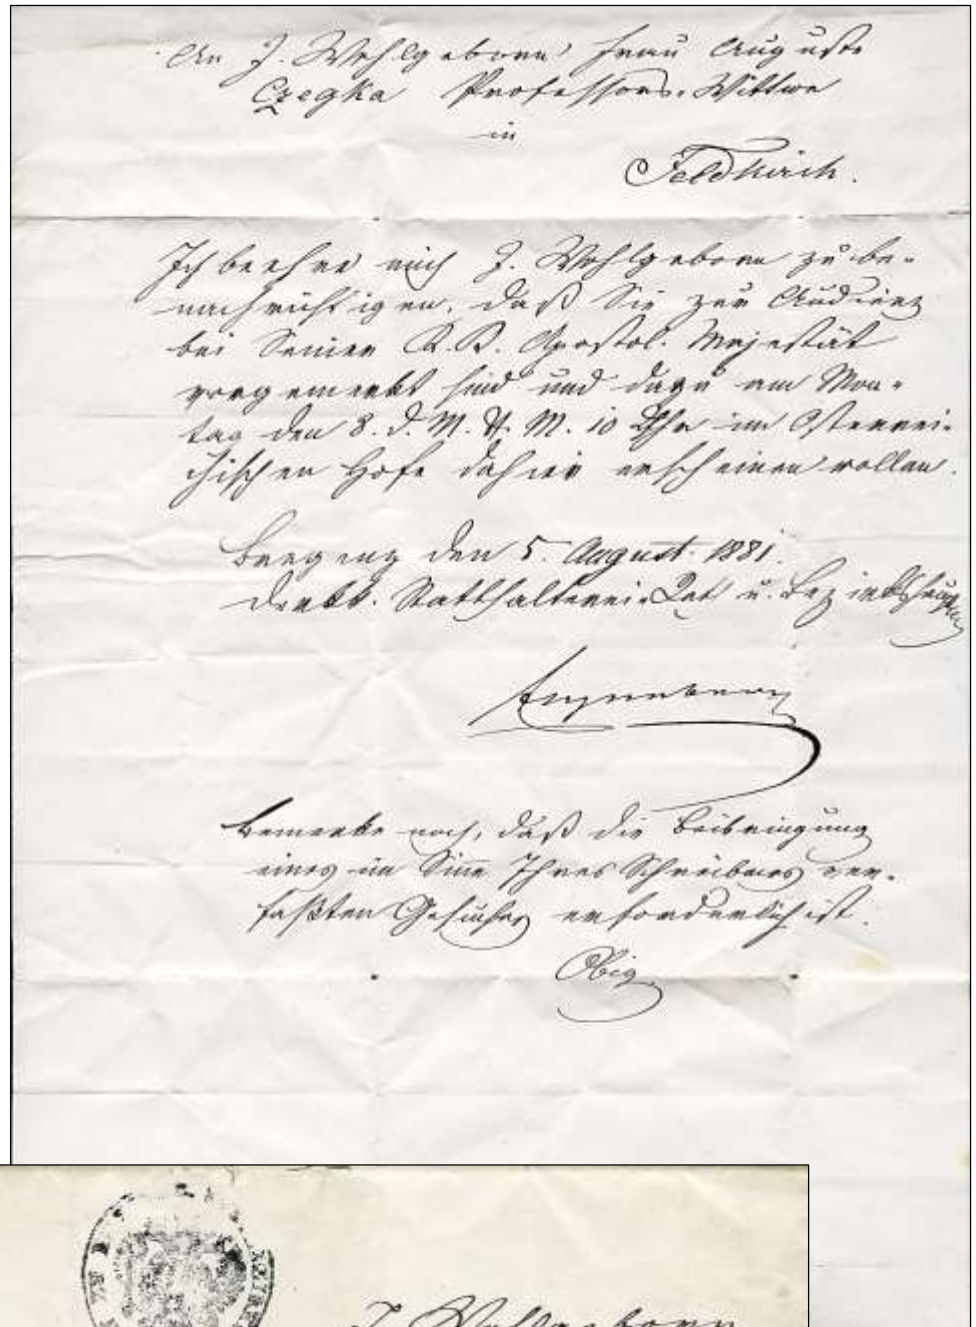 An I. Wohlgeborn Frau Auguste
Czegka Professors-Wittwe
in
Feldkirch.
Ich beehre mich I. Wohlgeborn zu be-
nachrichtigen, daß Sie zur Audienz
bei Seiner K.K. Apostol. Majestät
vorgemerkt sind und dazu am Mon-
tag den 8. d. M. V. M. 10 Uhr im Osterrei-
chischen Hofe dahier erscheinen wollen.
Bregenz den 5. August 1881.
Der k.k. Statthalterei-Rat u. Bezirkshauptm
Bemerke noch, daß die Beibringung
eines im Sinne Ihres Schreibens ver-
faßten Gesuches erforderlich ist.
Obig
I. Wohlgeborn